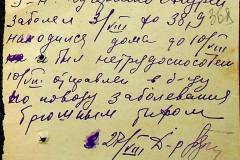 заболел 3/VIII t до 38,9
находился дома до 10/VIII
и был нетрудоспособен
10/VIII отправлен в б-цу
по поводу заболевания
брюшным тифом
27/VIII Д-р